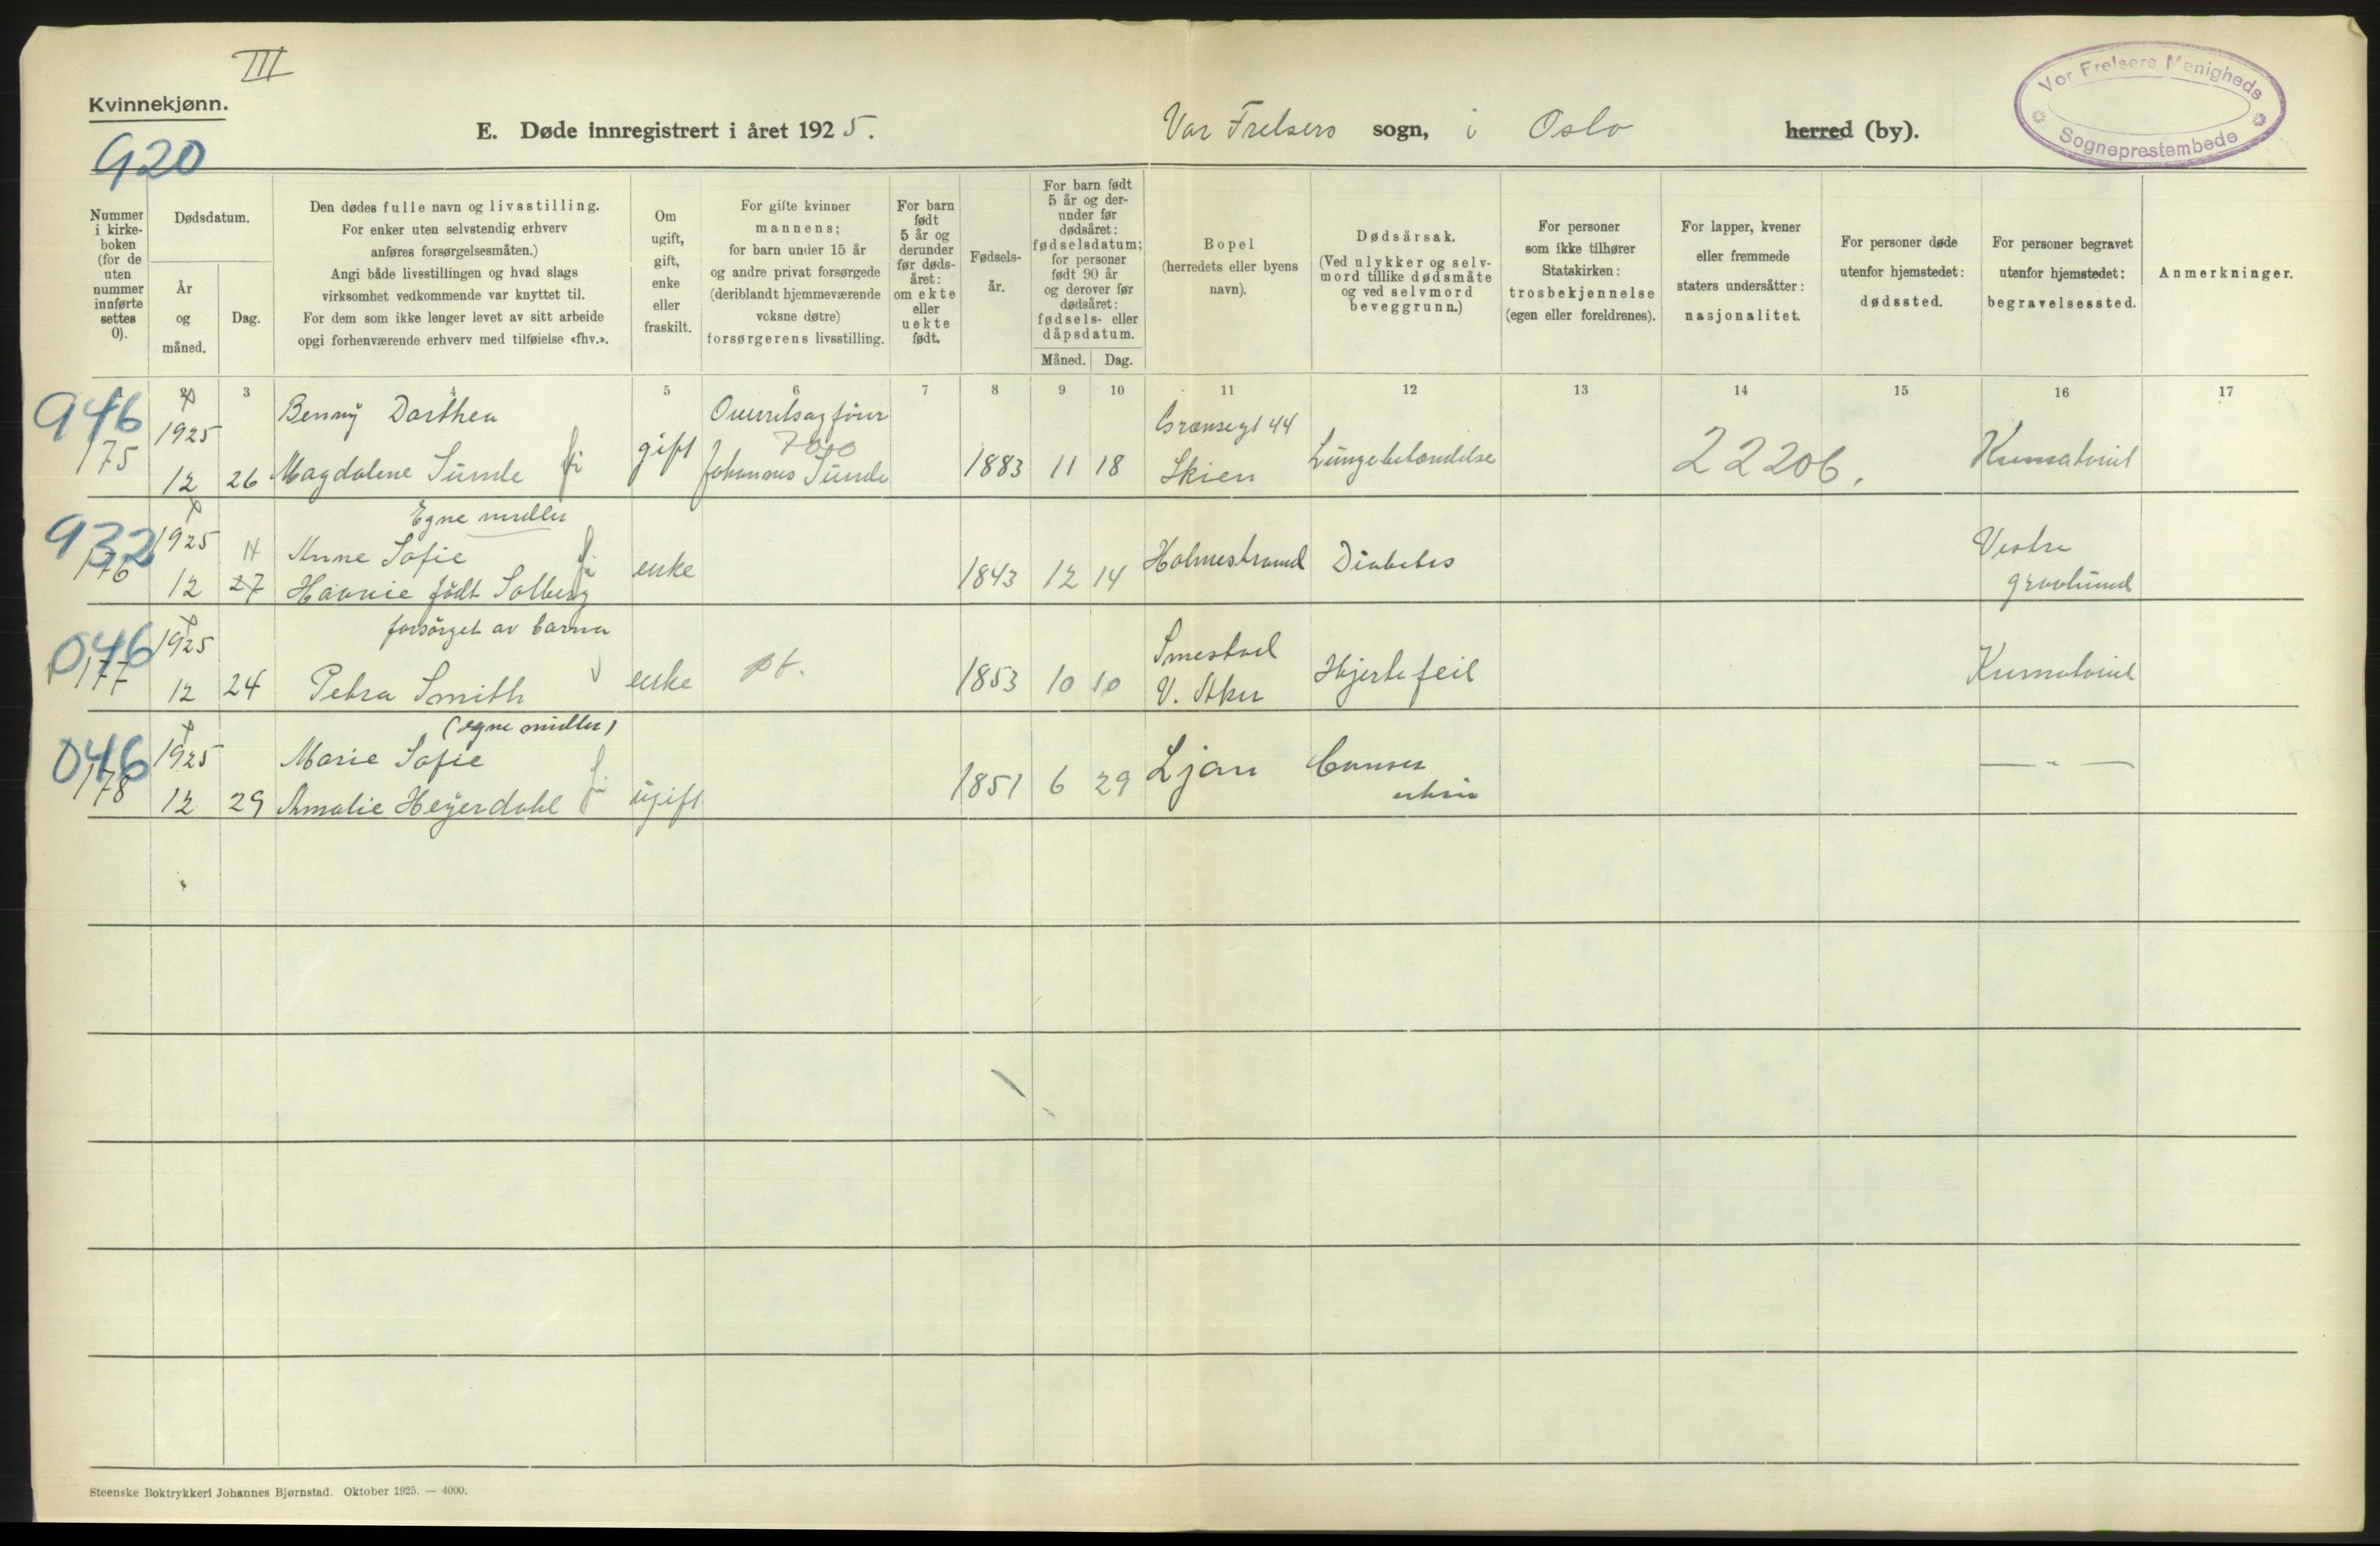 III
Kvinnekjønn.
920
E. Døde innregistrert i året 1925.
Vor Frelsers sogn, i Oslo herred (by).
Vor Frelsers Menigheds
Sogneprestembede
Nummer
i kirke-
boken
(for de
uten
nummer
innførte
settes
0).
Dødsdatum.
År
og
måned.
Dag.
Den dødes fulle navn og livsstilling.
For enker uten selvstendig erhverv
anføres forsørgelsesmåten.)
Angi både livsstillingen og hvad slags
virksomhet vedkommende var knyttet til.
For dem som ikke lenger levet av sitt arbeide
opgi forhenværende erhverv med tilføielse «fhv.».
Om
ugift,
gift,
enke
eller
fraskilt.
For gifte kvinner
mannens;
for barn under 15 år
og andre privat forsørgede
(deriblandt hjemmeværende
voksne døtre)
forsørgerens livsstilling.
For barn
født
5 år og
derunder
før døds-
året:
om ekte
eller
uekte
født.
Fødsels-
år.
For barn født
5 år og der-
under før
dødsåret:
fødselsdatum;
for personer
født 90 år
og derover før
dødsåret:
fødsels- eller
dåpsdatum.
Måned. Dag.
Bopel
(herredets eller byens
navn).
Dødsårsak.
(Ved ulykker og selv-
mord tillike dødsmåte
og ved selvmord
beveggrunn.)
For personer
som ikke tilhører
Statskirken:
trosbekjennelse
(egen eller foreldrenes).
For lapper, kvener
eller fremmede
staters undersåtter:
nasjonalitet.
For personer døde
utenfor hjemstedet:
dødssted.
For personer begravet
utenfor hjemstedet:
begravelsessted.
Anmerkninger.
3 4 5 6 7 8 9 10 11 12 13 14 15 16 17
946
175
1925
12 26
Benny Dorthea
Magdalene Sunde
gift
700
Johannes Sunde
1883 11 18
Grænsegt 44
Skien
Lungebetændelse
22206.
Krematoriet
932
176
1925
12 27
Egne midler
Anne Sofie
født Solberg
enke
1843 12 14
Holmestrand
Diabetes
Vestre
gravlund
046
177
1925
12 24
forsørget av barna
Petra Smith
enke
pt.
1853 10 10
Smestad
V. Aker
Hjertefeil
Krematoriet
046
178
1925
12 29
(egne midler)
Marie Sofie
Amalie Heyerdahl
ugift
1851 6 29
Ljan
Cancer
uteri
— " —
Steenske Boktrykkeri Johannes Bjørnstad. Oktober 1925. — 4000.